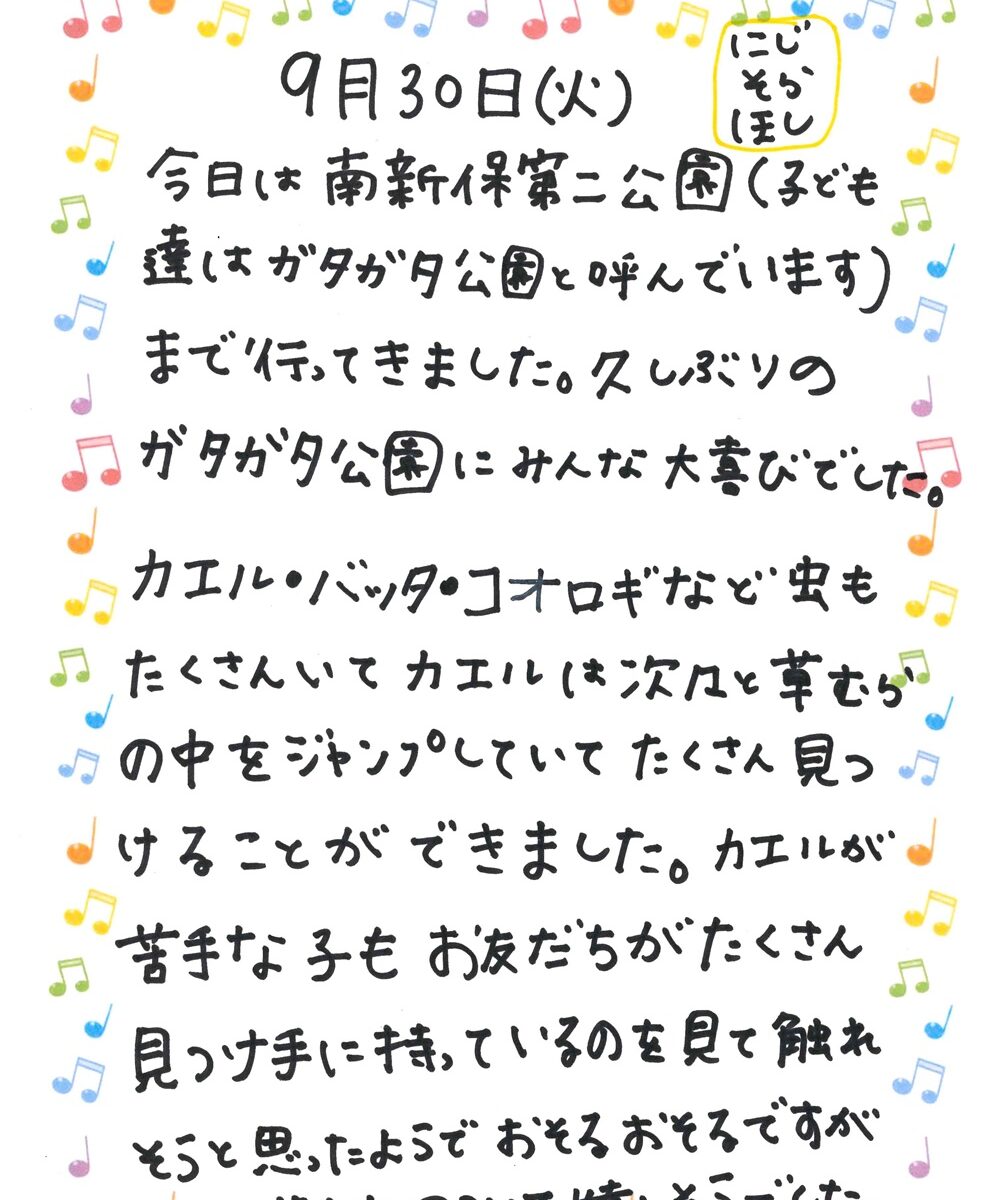 9月30日(火)
にじ
そら
ほし
今日は南新保第二公園(子ども
達はガタガタ公園と呼んでいます)
まで行ってきました。久しぶりの
ガタガタ公園にみんな大喜びでした。
カエル・バッタ・コオロギなど虫も
たくさんいてカエルは次々と草むら
の中をジャンプしていてたくさん見つ
けることができました。カエルが
苦手な子もお友だちがたくさん
見つけ手に持っているのを見て触れ
そうと思ったようでおそるおそるですが